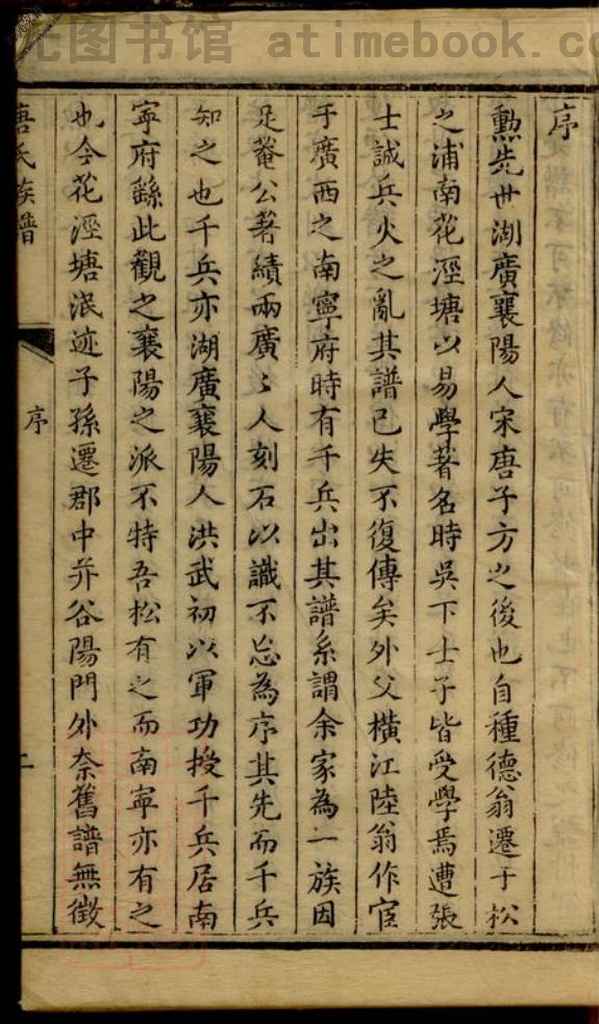 光图书馆 atimebook.co
序
勳先世湖廣襄陽人宋唐子方之後也自種德翁遷于松
之浦南花涇塘以易學著名時吳下士子皆受學焉遭張
士誠兵火之亂其譜已失不復傳矣外父橫江陸翁作宦
于廣西之南寧府時有千兵出其譜系謂余家為一族因
足菴公著績兩廣〻人刻石以識不忘為序其先而千兵
知之也千兵亦湖廣襄陽人洪武初以軍功授千兵居南
寧府繇此觀之襄陽之派不特吾松有之而南寧亦有之
也今花涇塘泯迹子孫遷郡中并谷陽門外奈舊譜無徵
唐氏族譜
序
二